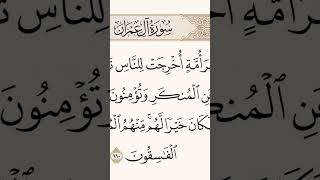 سُورَةُ آلِ عِمْرَان
أُمَّةٍ أُخْرِجَتْ لِلنَّاسِ
الْمُنكَرِ وَتُؤْمِنُونَ
خَيْرًا لَّهُم ۚ مِّنْهُمُ
الْفَاسِقُونَ ١١٠